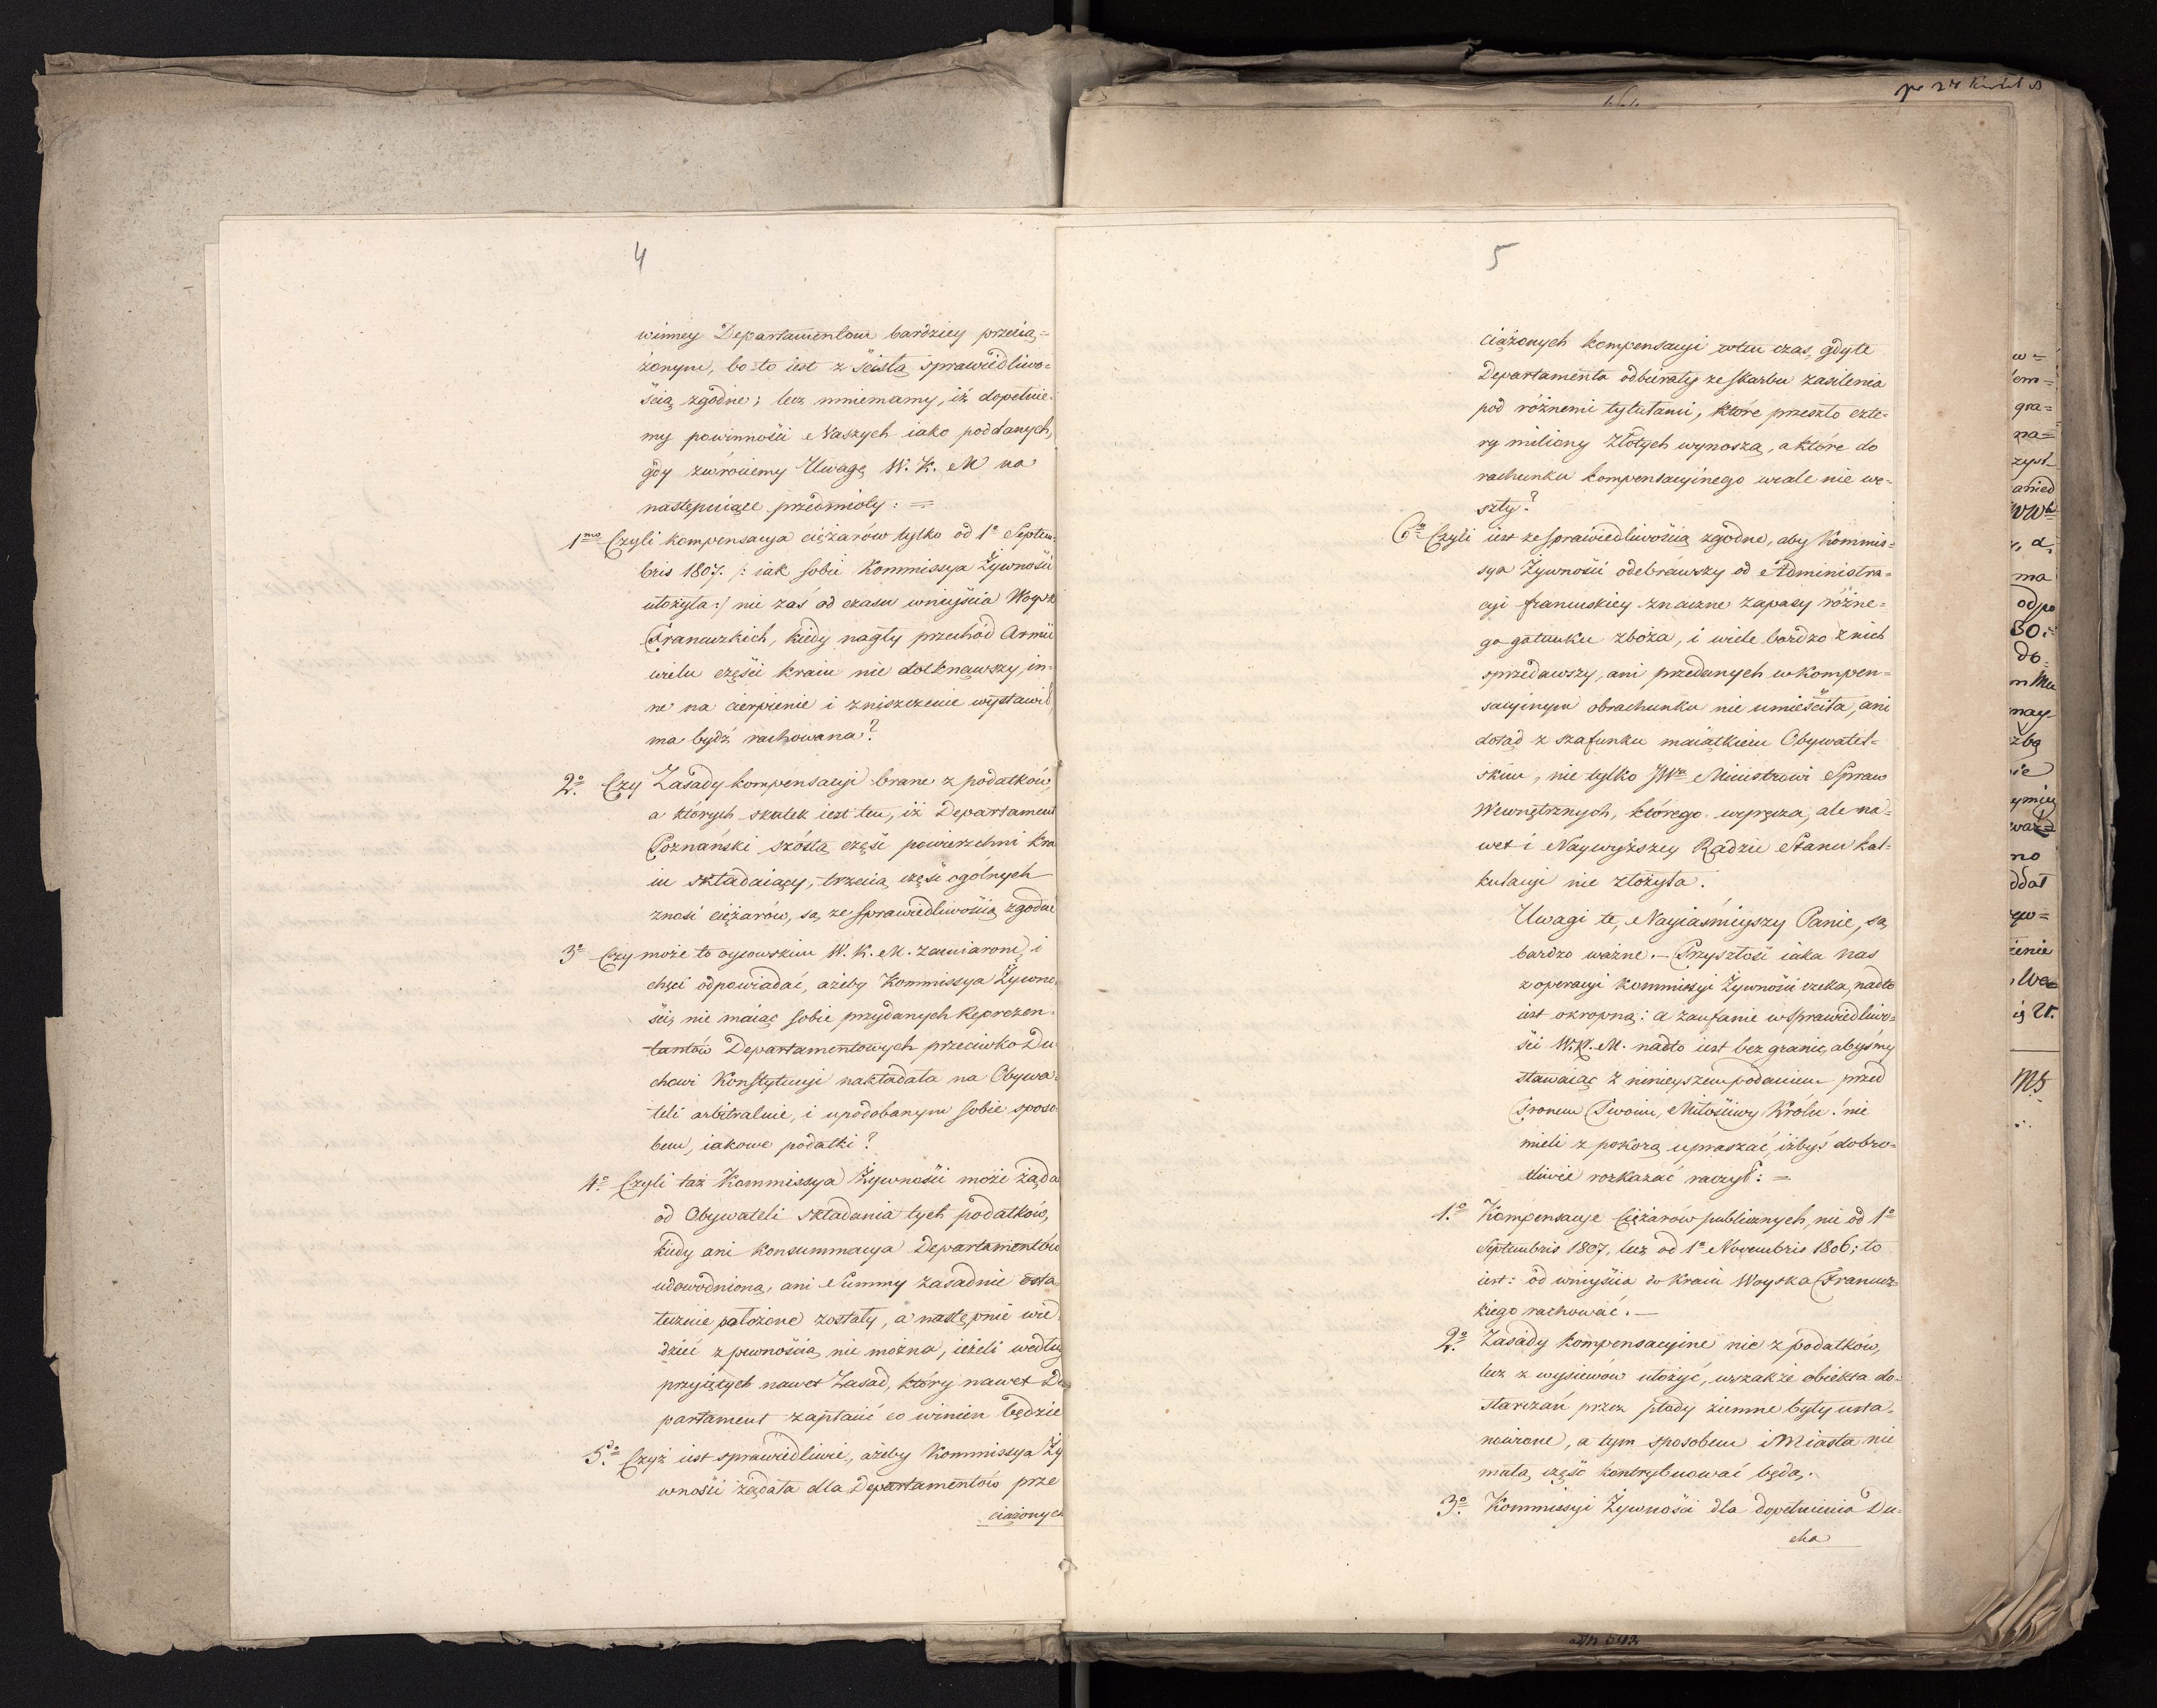 4
winney Departamentom bardziey przecią=
żonym, bo to iest z ścisłą sprawiedliwo=
ścią zgodne; lecz mniemamy, iż dopełnie-
my powinności Naszych iako poddanych,
gdy zwróciemy Uwagę W. K. M na
następuiące przedmioty: =
1mo Czyli kompensacya ciężarów tylko od 1o Septem-
bris 1807. /: iak sobie Kommissya Żywności
ułożyła :/ nie zaś od czasu wniyścia Woysk
Francuzkich, kiedy nagły przechód Armii
wielu części kraiu nie dotknąwszy, in-
ne na cierpienie i zniszczenie wystawił
ma bydź rachowana?
2o Czy Zasady kompensacyi brane z podatków,
a których skutek iest ten, iż Departament
Poznański szóstą część powierzchni kra
iu składaiący, trzecią część ogólnych
znosi ciężarów, są ze sprawiedliwością zgodne
3o Czy może to oycowskim W. K. M. zamiarom, i
chęci odpowiadać, ażeby Kommissya Żywno-
ści, nie maiąc sobie przydanych Reprezen-
tantów Departamentowych przeciwko Du-
chowi Konstytucyi nakładała na Obywa-
teli arbitralnie, i upodobanym sobie sposo-
bem, iakowe podatki?
4o Czyli taż Kommissya Żywności może żąda
od Obywateli składania tych podatków,
kiedy ani konsummacya Departamentów
udowodnioną, ani Summy zasadnie osta-
tecznie położone zostały, a następnie wie-
dzieć z pewnością nie można, ieżeli według
przyiętych nawet Zasad, który nawet De
partament zapłacić co winien będzie
5o Czyż iest sprawiedliwie, ażeby Kommissya Ży
wności żądała dla Departamentów prze
ciążonych
5
ciążonych kompensacyi wten czas, gdy te
Departamenta odbierały ze skarbu zasilenia
pod różnemi tytułami, które przeszło czte-
ry miliony Złotych wynoszą, a które do
rachunku kompensacyinego wcale nie we-
szły?
6o Czyli iest ze sprawiedliwością zgodne, aby Kommis-
sya Żywności odebrawszy od Administra-
cyi francuskiey znaczne zapasy różne-
go gatunku zboża, i wiele bardzo z nich
sprzedawszy, ani przedanych w kompen-
sacyinym obrachunku nie umieściła, ani
dotąd z szafunku maiątkiem Obywatel-
skim, nie tylko JWu Ministrowi Spraw
Wewnętrznych, którego wyręcza, ale na-
wet i Naywyższey Radzie Stanu kal-
kulacyi nie złożyła.
Uwagi te, Nayiaśnieyszy Panie, są
bardzo ważne. – Przyszłość iaka nas
z operacyi Kommissyi Żywności czeka, nadto
iest okropną: a zaufanie w sprawiedliwo-
ści W. K. M. nadto iest bez granic, abyśmy
stawaiąc z ninieyszem podaniem przed
Tronem Twoim, Miłościwy Królu! nie
mieli z pokorą upraszać, iżbyś dobro-
tliwie rozkazać raczył: =
1.o Kompensacye Ciężarów publicznych, nie od 1o
Septembris 1807, lecz od 1o Novembris 1806; to
iest: od wniyścia do Kraiu Woyska Francuz-
kiego rachować. –
2.o Zasady kompensacyine nie z podatków,
lecz z wysiewów ułożyć, wszakże obiekta do-
starczań przez płody ziemne były usta-
nowione, a tym sposobem i Miasta nie
małą część kontrybuować będą.
3.o Kommissyi Żywności dla dopełnienia Du-
cha